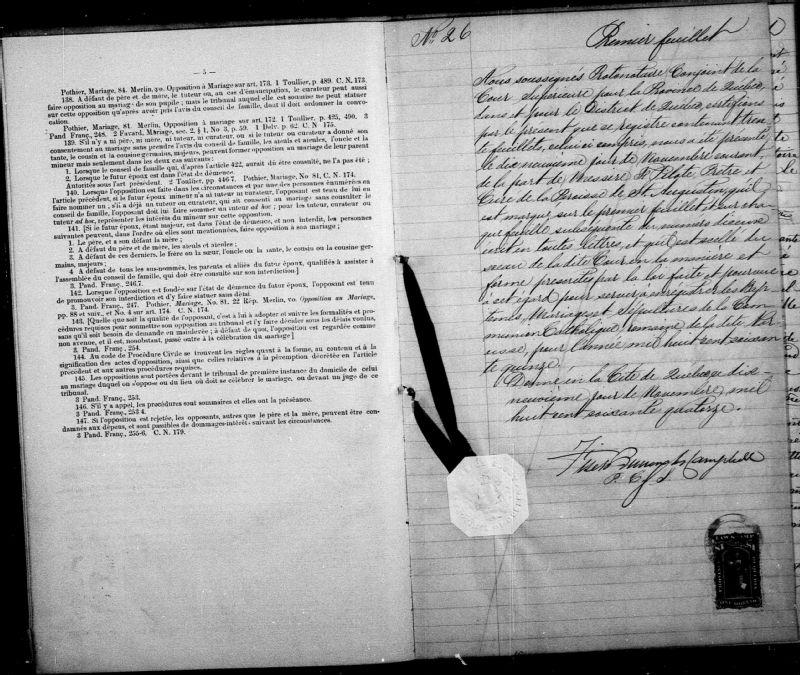 — 5 —
Pothier, Mariage, 84. Merlin, vo. Opposition à Mariage sur art. 173. 1 Toullier, p. 489. C. N. 173.
138. A défaut de père et de mère, le tuteur ou, au cas d'émancipation, le curateur peut aussi
faire opposition au mariage de son pupile; mais le tribunal auquel elle est soumise ne peut statuer
sur cette opposition qu'après avoir pris l'avis du conseil de famille, dont il doit ordonner la convo-
cation.
Pothier, Mariage, 81. Merlin, Opposition à mariage sur art. 172. 1 Toullier, p. 425, 490. 3
Pand. Franç., 248. 2 Favard, Mariage, sec. 2, § 1, No 3, p. 59. 1 Delv. p. 62. C. N. 175.
139. S'il n'y a ni père, ni mère, ni tuteur, ni curateur, ou si le tuteur ou curateur a donné son
consentement au mariage sans prendre l'avis du conseil de famille, les aïeuls et aïeules, l'oncle et la
tante, le cousin et la cousine germains, majeurs, peuvent former opposition au mariage de leur parent
mineur mais seulement dans les deux cas suivants:
1. Lorsque le conseil de famille qui, d'après l'article 422, aurait dû être consulté, ne l'a pas été;
2. Lorsque le futur époux est dans l'état de démence.
Autorités sous l'art. précédent. 2 Toullier, pp. 446 7. Pothier, Mariage, No 81, C. N. 174.
140. Lorsque l'opposition est faite dans les circonstances et par une des personnes énumérées en
l'article précédent, si le futur époux mineur n'a ni tuteur ni curateur, l'opposant est tenu de lui en
faire nommer un; s'il a déjà un tuteur ou curateur, qui ait consenti au mariage sans consulter le
conseil de famille, l'opposant doit lui faire nommer un tuteur ad hoc; pour les tuteur, curateur ou
tuteur ad hoc, représenter les intérêts du mineur sur cette opposition.
141. [Si le futur époux, étant majeur, est dans l'état de démence, et non interdit, les personnes
suivantes peuvent, dans l'ordre où elles sont mentionnées, faire opposition à son mariage;
1. Le père, et à son défaut la mère;
2. A défaut du père et de mère, les aïeuls et aïeules;
3. A défaut de ces derniers, le frère ou la sœur, l'oncle ou la tante, le cousin ou la cousine ger-
mains, majeurs;
4. A défaut de tous les sus-nommés, les parents et alliés du futur époux, qualifiés à assister à
l'assemblée du conseil de famille, qui doit être consulté sur son interdiction]
3. Pand. Franç., 246.7.
142. Lorsque l'opposition est fondée sur l'état de démence du futur époux, l'opposant est tenu
de promouvoir son interdiction et d'y faire statuer sans délai.
3. Pand. Franç., 247. Pothier, Mariage, No. 81, 22 Rép. Merlin, vo. Opposition au Mariage,
pp. 88 et suiv., et No. 4 sur art. 174. C. N. 174.
143. [Quelle que soit la qualité de l'opposant, c'est à lui à adopter et suivre les formalités et pro-
cédures requises pour soumettre son opposition au tribunal et l'y faire décider sous les délais voulus,
sans qu'il soit besoin de demande en mainlevée; à défaut de quoi, l'opposition est regardée comme
non avenue, et il est, nonobstant, passé outre à la célébration du mariage]
3. Pand. Franç., 254.
144. Au code de Procédure Civile se trouvent les règles quant à la forme, au contenu et à la
signification des actes d'opposition, ainsi que celles relatives à la péremption décrétée en l'article
précédent et aux autres procédures requises.
145. Les oppositions sont portées devant le tribunal de première instance du domicile de celui
au mariage duquel on s'oppose ou du lieu où doit se célébrer le mariage, ou devant un juge de ce
tribunal.
3 Pand. Franç., 253.
146. S'il y a appel, les procédures sont sommaires et elles ont la préséance.
3 Pand. Franç., 253 4.
147. Si l'opposition est rejetée, les opposants, autres que le père et la mère, peuvent être con-
damnés aux dépens, et sont passibles de dommages-intérêts suivant les circonstances.
3 Pand. Franç., 255-6. C. N. 179.
No 26
Premier feuillet
Nous soussignés Protonotaire Conjoint de la
Cour Supérieure pour la Province de Québec,
dans et pour le District de Québec, certifions
par le présent que ce registre contenant tren
te feuillets, celui ci compris, nous a été présenté
le dix neuvième jour de Novembre courant
de la part de Messire Ft Pilote Prêtre et
Curé de la Paroisse de St Augustin, qu'il
est marqué sur le premier feuillet et sur cha-
que feuille subséquente du numéro d'icelui
écrit en toutes lettres, et qu'il est scellé du
sceau de la dite Cour en la manière et
forme prescrites par la loi faite et pourvue
à cet égard pour servir à enregistrer les Bap-
têmes, Mariages et Sépultures de la Com-
munion Catholique romaine de la dite Par
oisse, pour l'année mil huit cent soixan
te quinze.
Donné en la Cité de Québec ce dix-
neuvième jour de Novembre mil
huit cent soixante quatorze.
Fiset Burroughs Campbell
P. C. S.
LAW STAMP
$1
ONE DOLLAR